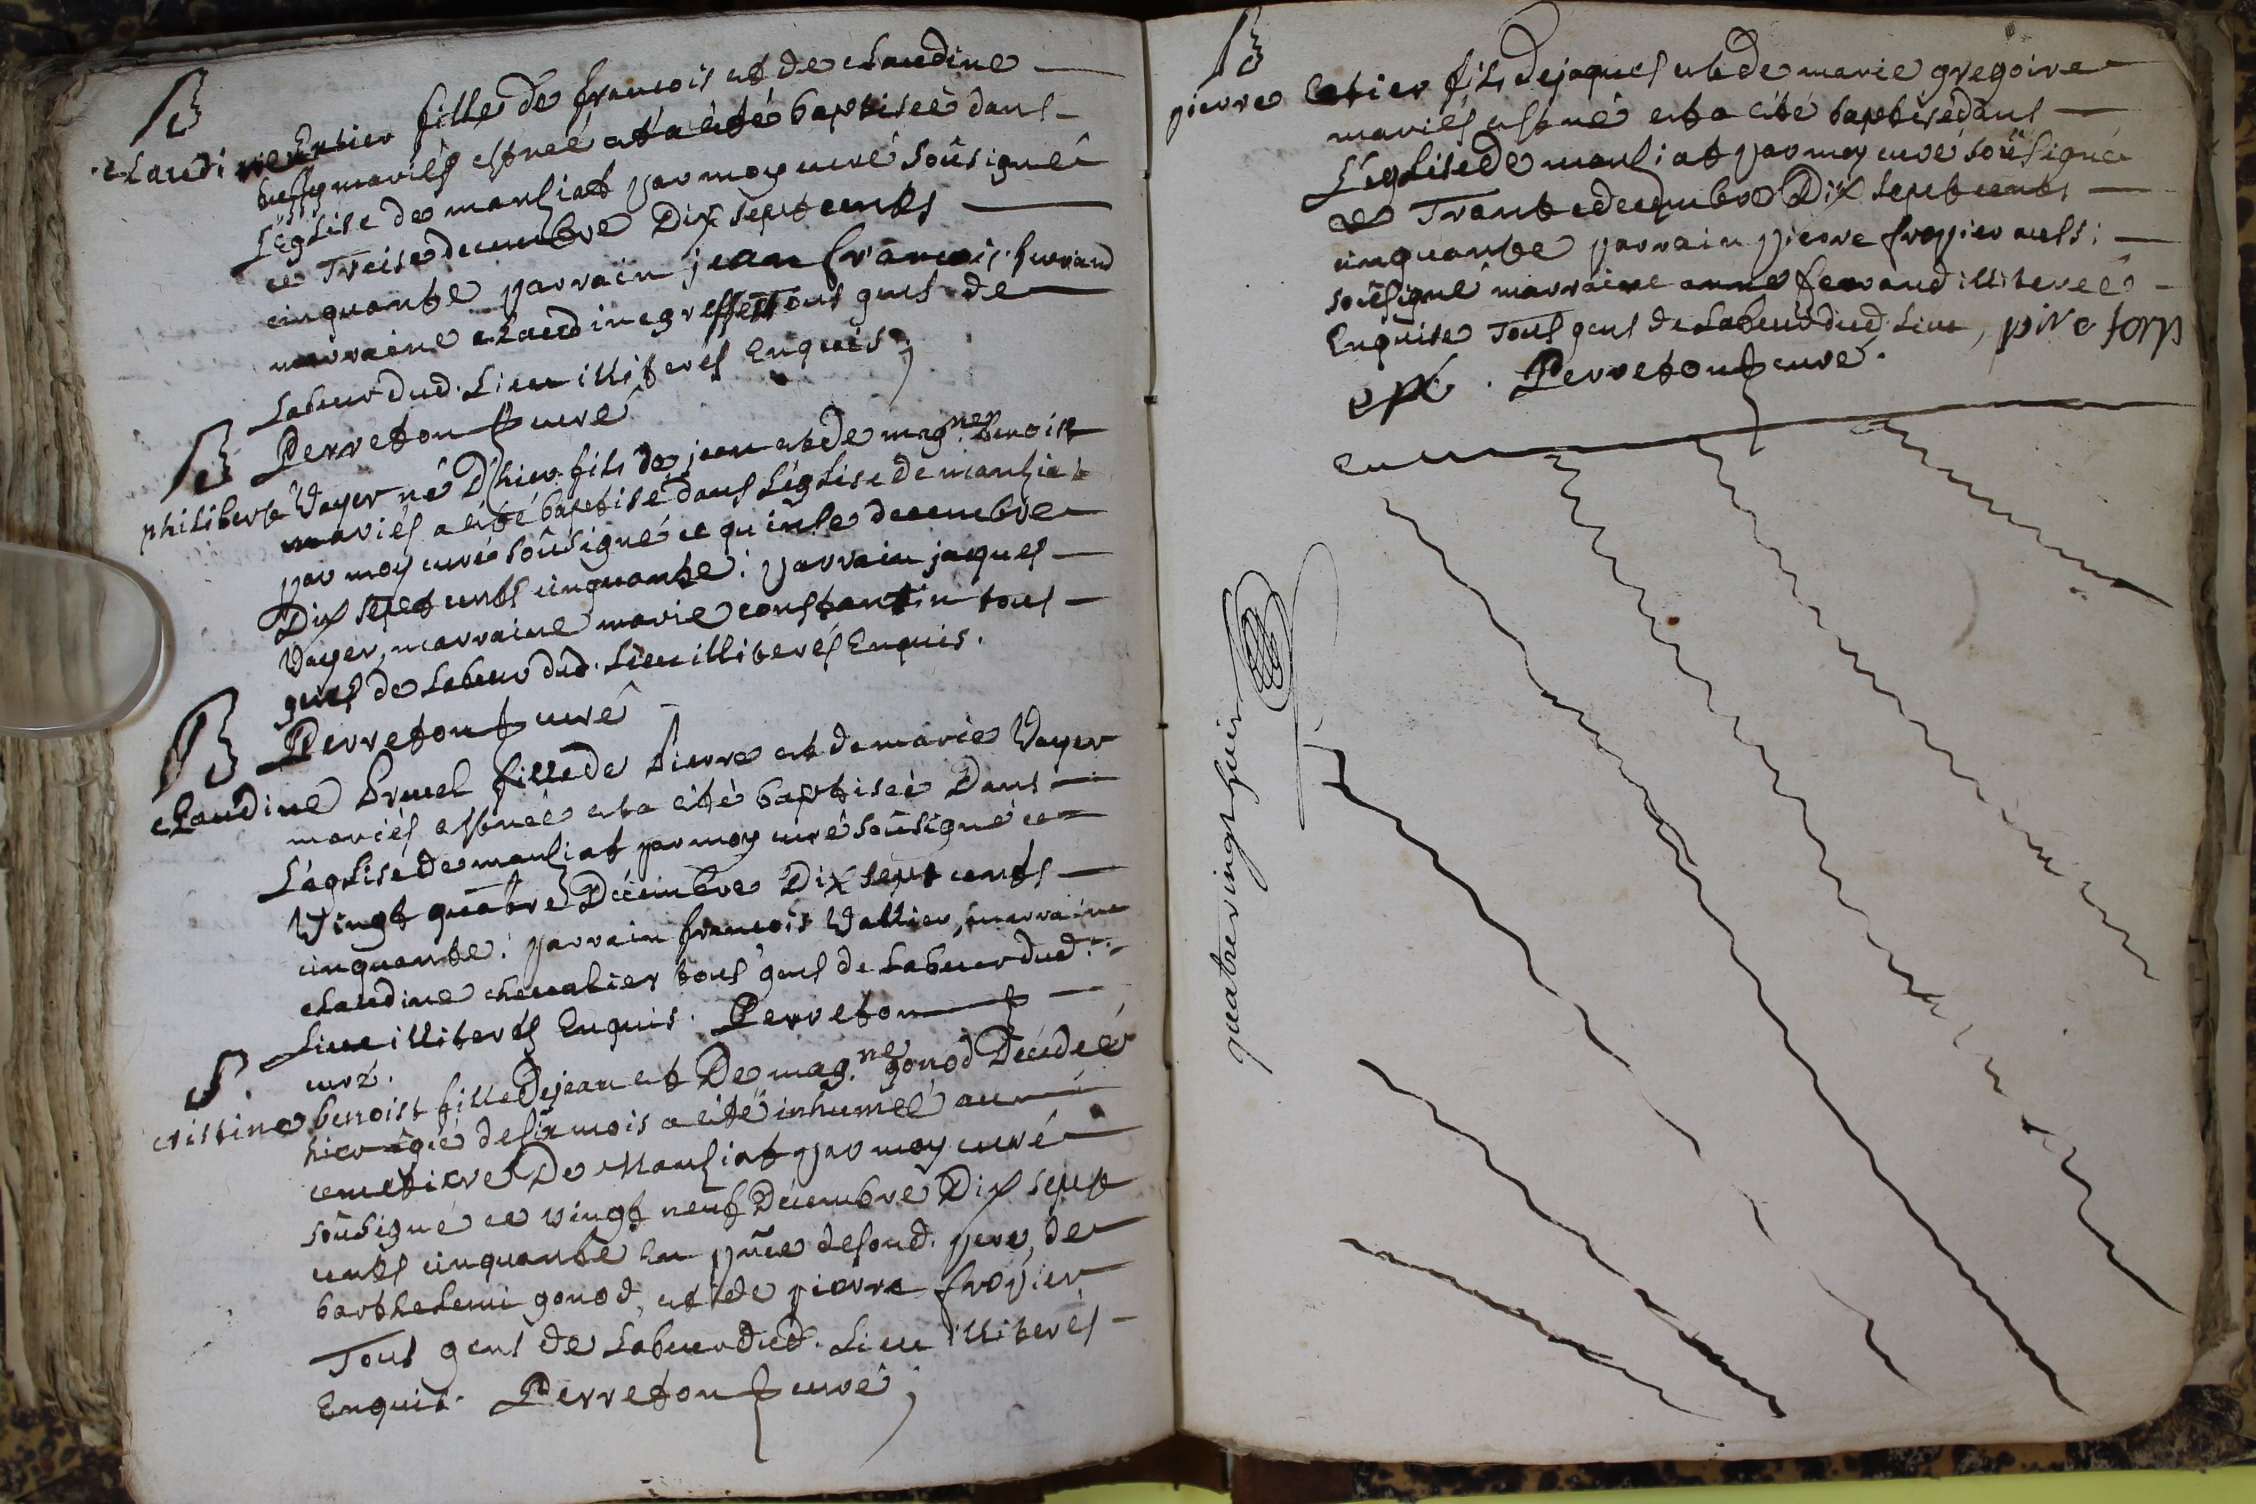 B
Claudine fille de francois et de claudine
bussy mariés est née et a été baptiseé dans
L'église de manziat par moy curé soûsigné
ce Treise decembre Dix sept cents
cinquante parrain jean francois ferrand
marraine claudine greffet tous gens de
Labeur dud. Lieu illiterés Enquis,
Perreton curé
B
philibert Vayer né D'hier fils de jean et de mag.ne benoist
mariés a été baptisé dans L'église de manziat
par moy curé soûsigné ce quinse decembre
Dix sept cents cinquante. parrain jaques
Vayer, marraine marie constantin tous
gens de Labeur dud. Lieu illiterés Enquis.
Perreton curé
B
claudine fille de Pierre et de marie Vayer
mariés est née et a été baptiseé Dans
L'église de manziat par moy curé soûsigné ce
Vingt quatre Décembre Dix sept cents
cinquante. parrain francois Vallier, marraine
claudine chevalier tous gens de Labeur dud.
Lieu illiterés Enquis. Perreton
curé.
S.
cristine benoist fille De jean et De mag.ne gonod Décedeé
hier âgé de six mois a été inhumeé au
cemetiere De Manziat par moy curé
soûsigné ce vingt neuf Décembre Dix sept
cents cinquante En pñce desond. pere, de
barthelemi gonod, et de pierre fropier
Tous gens de Labeur dud. Lieu illiterés
Enquis. Perreton curé,
B
pierre Catier fils de jaques et de marie gregoire
mariés est né et a été baptisé dans
L'église de manziat par moy curé soûsigné
ce Trante decembre Dix sept cents
cinquante parrain pierre fropier aussi
soûsigné marraine anne ferrand illitereé
Enquise Tous gens de Labeur dud. Lieu,
Perreton curé.
quatre vingt huit